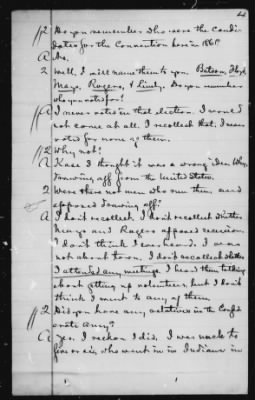 4
1/2 Do you remember who were the Candi-
dates for the Convention here in 1861?
A No.
2 Well, I will name them to you. Batson, Floyd,
Mayo, Rogers, & Lindy. Do you remember
who you voted for?
A I never voted in that election. I now I
not come at all. I recollect that. I never
voted for none of them.
1/2 Why not?
A Kase I thought it was wrong
drawing off from the United States.
2 Were there not men who run then and
opposed drawing off?
A I don't recollect. I don't recollect whether
Mayo and Rogers opposed secession.
I don't think I ever heard. I was
not about town. I don't recollect whether
I attended any meetings. I heard them talking
about getting up volunteers but I don't
think I went to any of them.
1/2 Did you have any relatives in the Confed-
erate army?
A Yes, I reckon I did. I was uncle to
five or six who went in in Indiana in